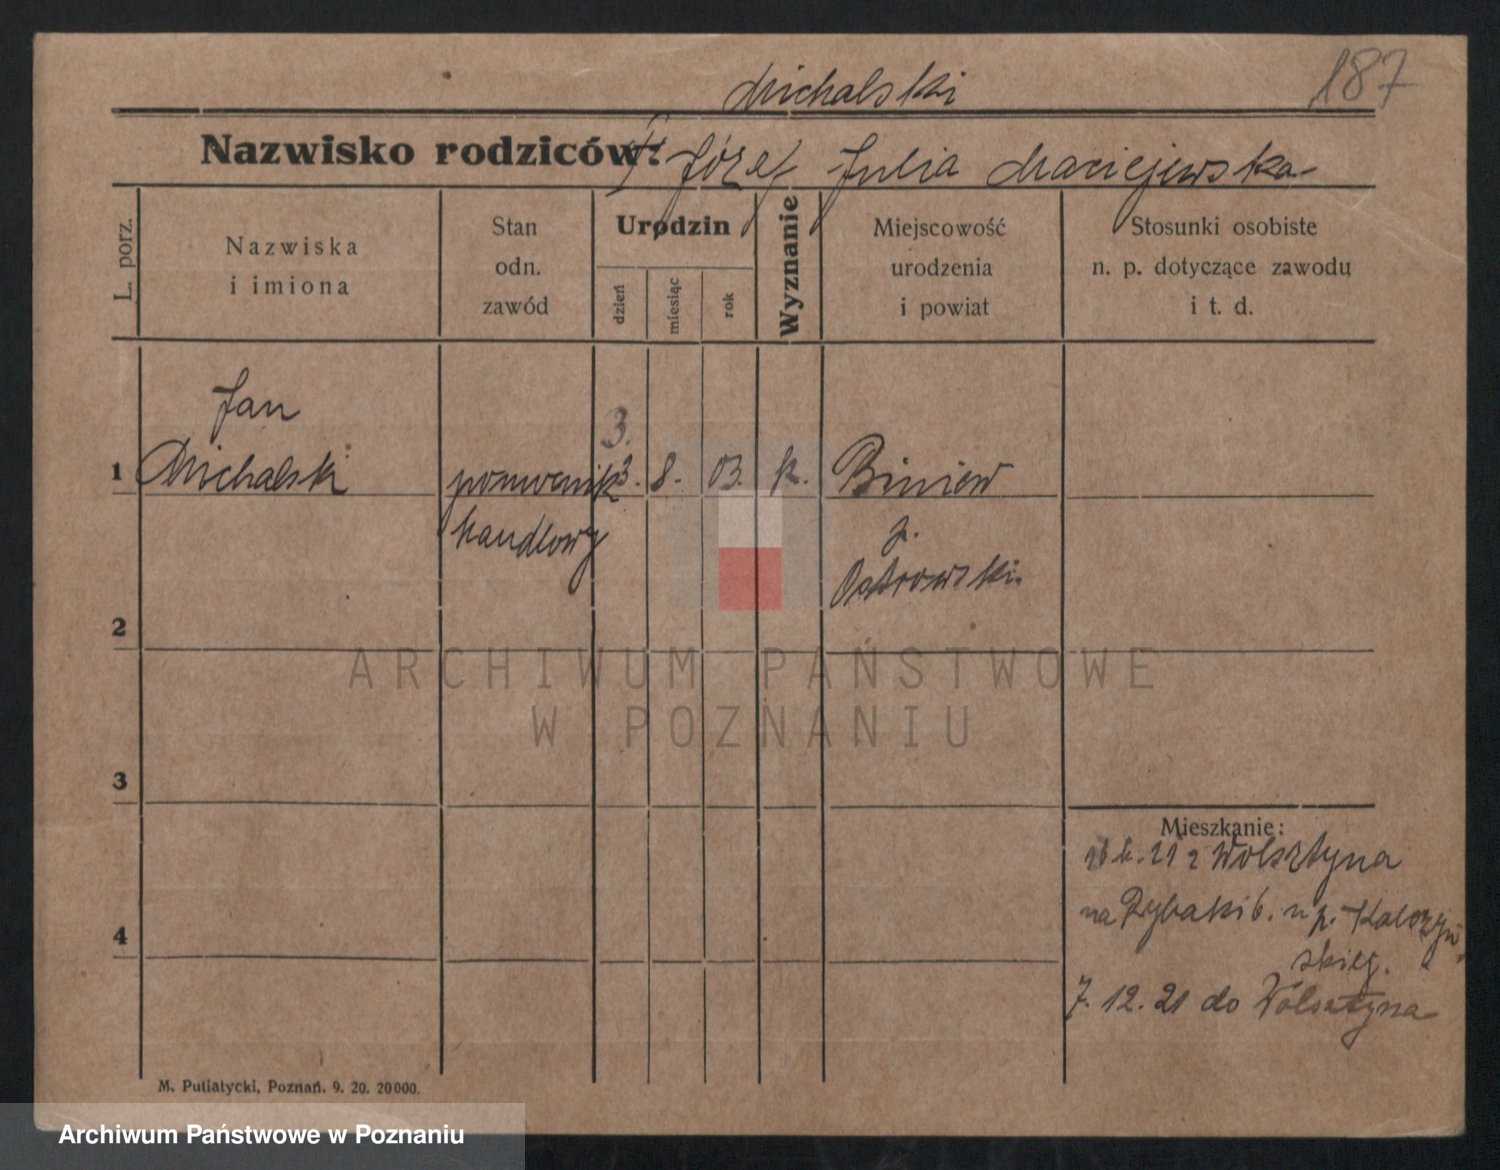 Michalski
187
Nazwisko rodziców: Józef Julia Maciejewska
L. porz.
Nazwiska
i imiona
Stan
odn.
zawód
Urodzin
dzień
miesiąc
rok
Wyznanie
Miejscowość
urodzenia
i powiat
Stosunki osobiste
n. p. dotyczące zawodu
i t. d.
Jan
3.
1 Michalski pomocnik 3. 8. 03. k. Biniew
handlowy p.
Ostrowski.
2
ARCHIWUM PAŃSTWOWE
W POZNANIU
3
Mieszkanie:
21 z Wolsztyna
4 na Rybaki 6. u p.
skieg.
7. 12. 21 do Wolsztyna
M. Putiatycki, Poznań. 9. 20. 20000.
Archiwum Państwowe w Poznaniu